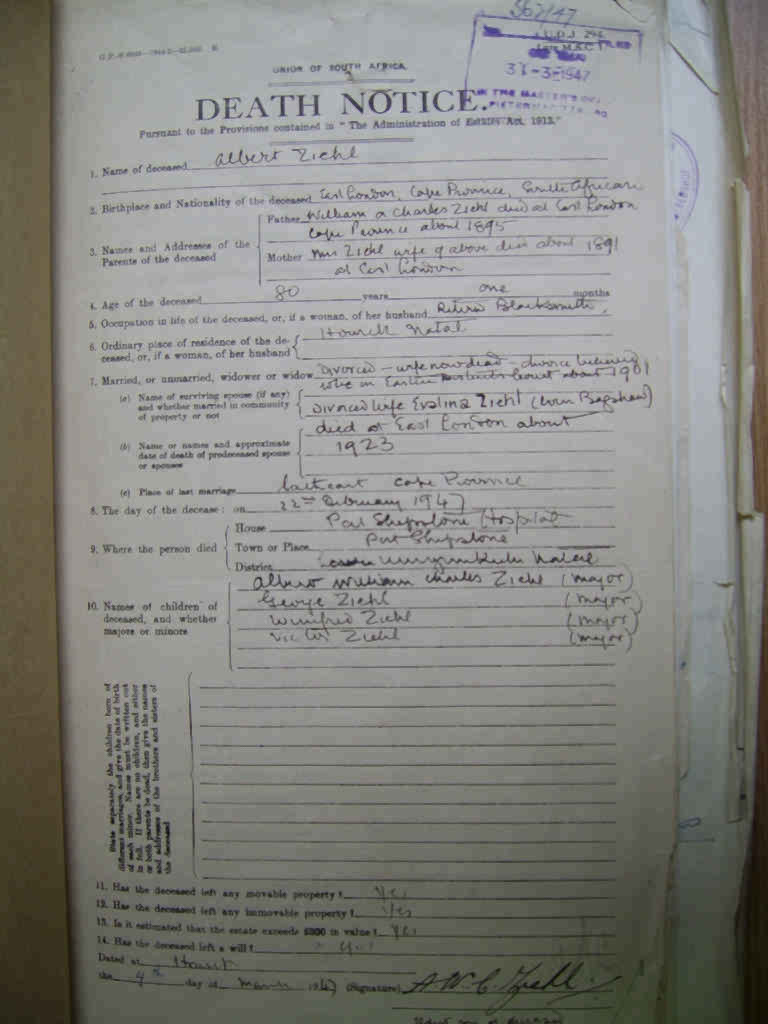 567/47
U.D.J. 294
31-3-1947
IN THE MASTER'S
UNION OF SOUTH AFRICA.
DEATH NOTICE.
Pursuant to the Provisions contained in "The Administration of Estates Act, 1913."
1. Name of deceased Albert Ziehl
2. Birthplace and Nationality of the deceased East London, Cape Province, South African
3. Names and Addresses of the Parents of the deceased
Father William a Charles Ziehl died at East London
Cape Province about 1895
Mother Mrs Ziehl wife of above died about 1891
at East London
4. Age of the deceased 80 years one months
5. Occupation in life of the deceased, or, if a woman, of her husband Retired Blacksmith
6. Ordinary place of residence of the deceased, or, if a woman, of her husband Howick Natal
7. Married, or unmarried, widower or widow Divorced – wife now dead – divorce
in Eastern Districts Court about 1901
(a) Name of surviving spouse (if any) and whether married in community of property or not
divorced wife Evalina Ziehl (born Bagshaw)
died at East London about
(b) Name or names and approximate date of death of predeceased spouse or spouses
1923
(c) Place of last marriage Cathcart Cape Province
8. The day of the decease: on 22nd February 1947
9. Where the person died
House Port Shepstone Hospital
Town or Place Port Shepstone
District Umzimkulu Natal
10. Names of children of deceased, and whether majors or minors
Albert William Charles Ziehl (major)
George Ziehl (major)
Winifred Ziehl (major)
Victor Ziehl (major)
State separately the children born of
different marriages, and give the date of birth
of each minor. Names must be written out
in full. If there are no children, and either
or both parents be dead, then give the names
and addresses of the brothers and sisters of
the deceased
11. Has the deceased left any movable property? Yes
12. Has the deceased left any immovable property? Yes
13. Is it estimated that the estate exceeds £300 in value? Yes
14. Has the deceased left a will?
Dated at Howick
the 4th day of March 1947 (Signature) A.W.C. Ziehl